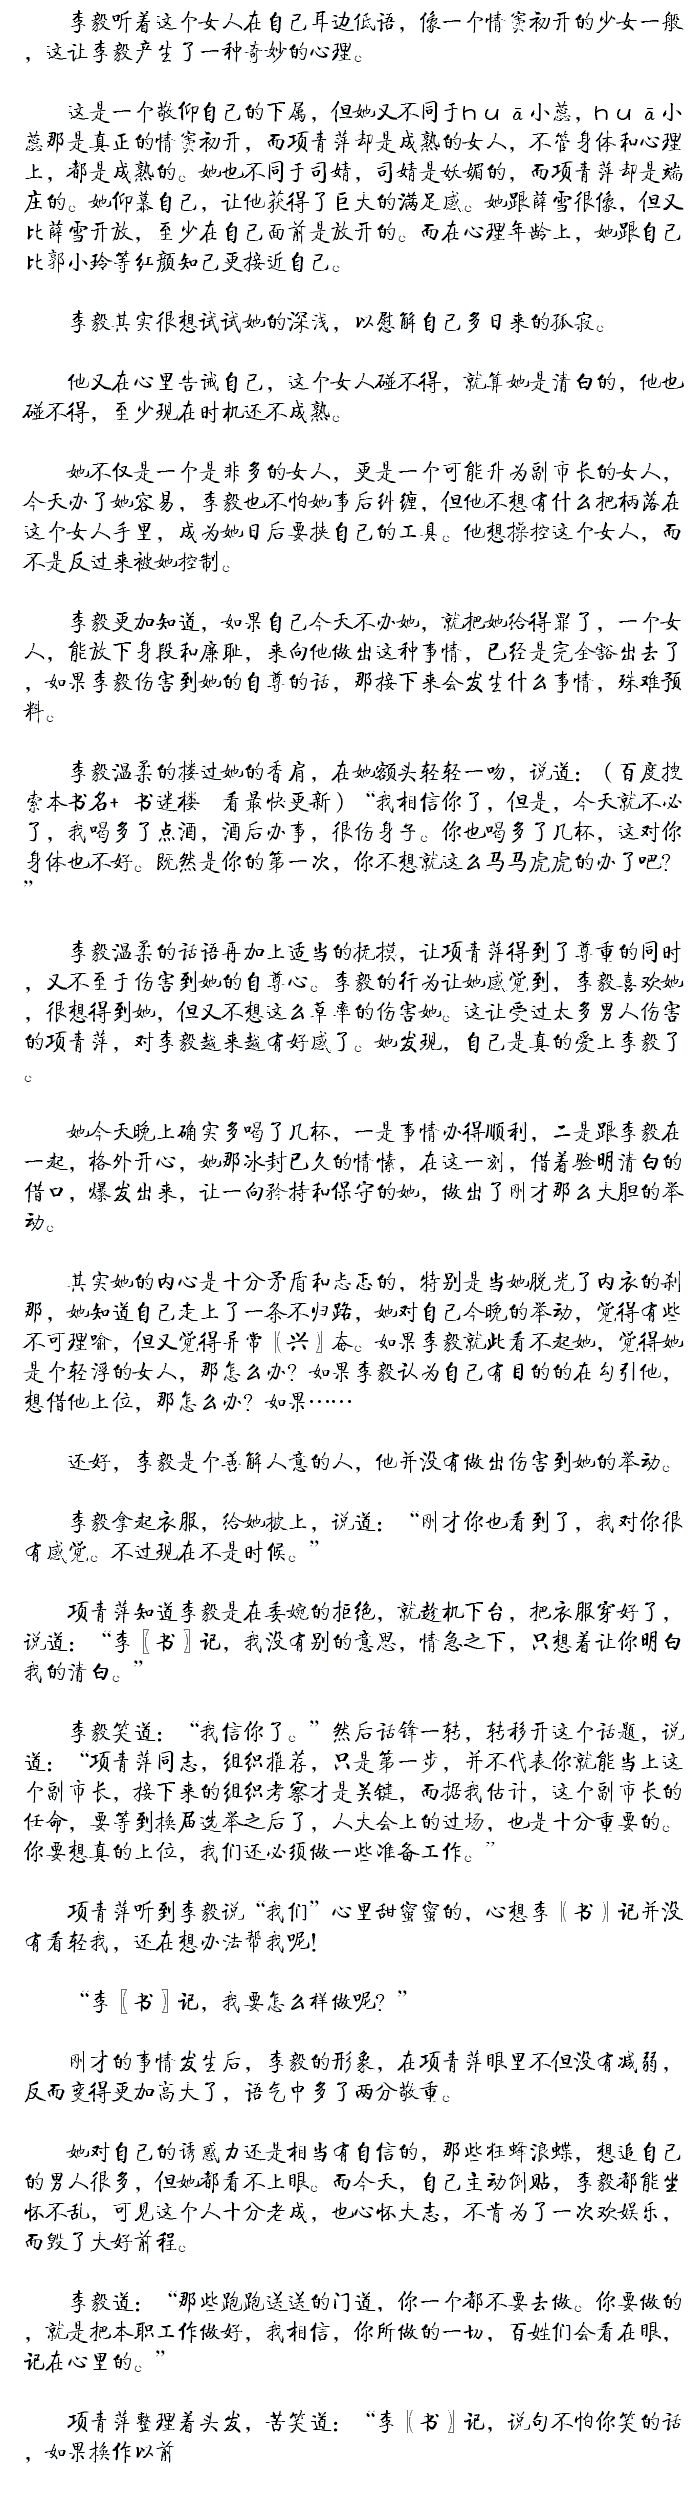 李毅听着这个女人在自己耳边低语，像一个情窦初开的少女一般
，这让李毅产生了一种奇妙的心理。
这是一个敬仰自己的下属，但她又不同于ｈｕā小蕊，ｈｕā小
蕊那是真正的情窦初开，而项青萍却是成熟的女人，不管身体和心理
上，都是成熟的。她也不同于司婧，司婧是妖媚的，而项青萍却是端
庄的。她仰慕自己，让他获得了巨大的满足感。她跟薛雪很像，但又
比薛雪开放，至少在自己面前是放开的。而在心理年龄上，她跟自己
比郭小玲等红颜知己更接近自己。
李毅其实很想试试她的深浅，以慰解自己多日来的孤寂。
他又在心里告诫自己，这个女人碰不得，就算她是清白的，他也
碰不得，至少现在时机还不成熟。
她不仅是一个是非多的女人，更是一个可能升为副市长的女人，
今天办了她容易，李毅也不怕她事后纠缠，但他不想有什么把柄落在
这个女人手里，成为她日后要挟自己的工具。他想操控这个女人，而
不是反过来被她控制。
李毅更加知道，如果自己今天不办她，就把她给得罪了，一个女
人，能放下身段和廉耻，来向他做出这种事情，已经是完全豁出去了
，如果李毅伤害到她的自尊的话，那接下来会发生什么事情，殊难预
料。
李毅温柔的搂过她的香肩，在她额头轻轻一吻，说道：（百度搜
索本书名+ 书迷楼　看最快更新）“我相信你了，但是，今天就不必
了，我喝多了点酒，酒后办事，很伤身子。你也喝多了几杯，这对你
身体也不好。既然是你的第一次，你不想就这么马马虎虎的办了吧？
”
李毅温柔的话语再加上适当的抚摸，让项青萍得到了尊重的同时
，又不至于伤害到她的自尊心。李毅的行为让她感觉到，李毅喜欢她
，很想得到她，但又不想这么草率的伤害她。这让受过太多男人伤害
的项青萍，对李毅越来越有好感了。她发现，自己是真的爱上李毅了
。
她今天晚上确实多喝了几杯，一是事情办得顺利，二是跟李毅在
一起，格外开心，她那冰封已久的情愫，在这一刻，借着验明清白的
借口，爆发出来，让一向矜持和保守的她，做出了刚才那么大胆的举
动。
其实她的内心是十分矛盾和忐忑的，特别是当她脱光了内衣的刹
那，她知道自己走上了一条不归路，她对自己今晚的举动，觉得有些
不可理喻，但又觉得异常〖兴〗奋。如果李毅就此看不起她，觉得她
是个轻浮的女人，那怎么办？如果李毅认为自己有目的的在勾引他，
想借他上位，那怎么办？如果……
还好，李毅是个善解人意的人，他并没有做出伤害到她的举动。
李毅拿起衣服，给她披上，说道：“刚才你也看到了，我对你很
有感觉。不过现在不是时候。”
项青萍知道李毅是在委婉的拒绝，就趁机下台，把衣服穿好了，
说道：“李〖书〗记，我没有别的意思，情急之下，只想着让你明白
我的清白。”
李毅笑道：“我信你了。”然后话锋一转，转移开这个话题，说
道：“项青萍同志，组织推荐，只是第一步，并不代表你就能当上这
个副市长，接下来的组织考察才是关键，而据我估计，这个副市长的
任命，要等到换届选举之后了，人大会上的过场，也是十分重要的。
你要想真的上位，我们还必须做一些准备工作。”
项青萍听到李毅说“我们”心里甜蜜蜜的，心想李〖书〗记并没
有看轻我，还在想办法帮我呢！
“李〖书〗记，我要怎么样做呢？”
刚才的事情发生后，李毅的形象，在项青萍眼里不但没有减弱，
反而变得更加高大了，语气中多了两分敬重。
她对自己的诱惑力还是相当有自信的，那些狂蜂浪蝶，想追自己
的男人很多，但她都看不上眼。而今天，自己主动倒贴，李毅都能坐
怀不乱，可见这个人十分老成，也心怀大志，不肯为了一次欢娱乐，
而毁了大好前程。
李毅道：“那些跑跑送送的门道，你一个都不要去做。你要做的
，就是把本职工作做好，我相信，你所做的一切，百姓们会看在眼，
记在心里的。”
项青萍整理着头发，苦笑道：“李〖书〗记，说句不怕你笑的话
，如果换作以前